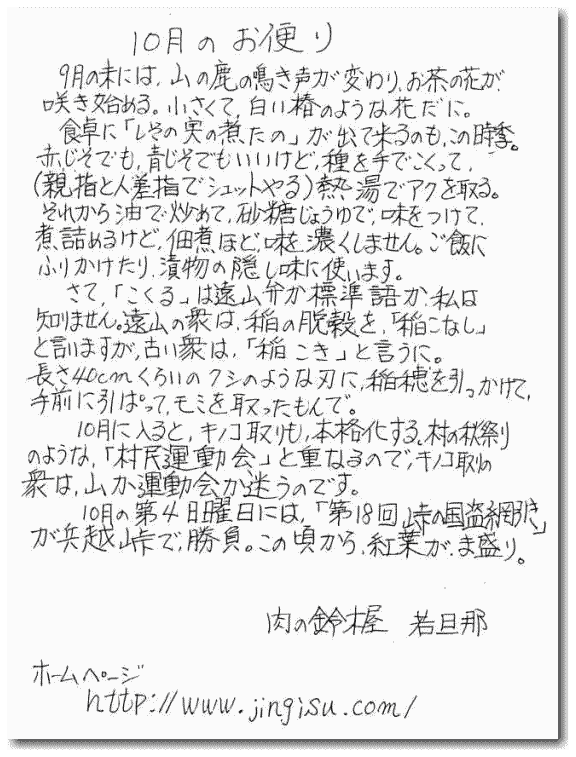 10月のお便り
9月の末には、山の鹿の鳴き声が変わり、お茶の花が
咲き始める。小さくて、白い椿のような花だに。
食卓に「しその実の煮たの」が出て来るのも、この時季。
赤じそでも、青じそでもいいけど、種を手でこくって、
(親指と人差指でシュットやる)熱湯でアクを取る。
それから油で炒めて、砂糖じょうゆで、味をつけて、
煮詰めるけど、佃煮ほど、味を濃くしません。ご飯に
ふりかけたり、漬物の隠し味に使います。
さて、「こくる」は遠山弁か標準語か、私は
知りません。遠山の衆は、稲の脱穀を、「稲こなし」
と言いますが、古い衆は、「稲こき」と言うに。
長さ40cmくらいのクシのような刃に、稲穂を引っかけて、
手前に引ぱって、モミを取ったもんで。
10月に入ると、キノコ取りも、本格化する。村の秋祭り
のような、「村民運動会」と重なるので、キノコ取りの
衆は、山か運動会か迷うのです。
10月の第4日曜日には、「第18回 峠の国盗綱引き」
が兵越峠で、勝負。この頃から、紅葉が、ま盛り。
肉の鈴木屋 若旦那
ホームページ
http://www.jingisu.com/